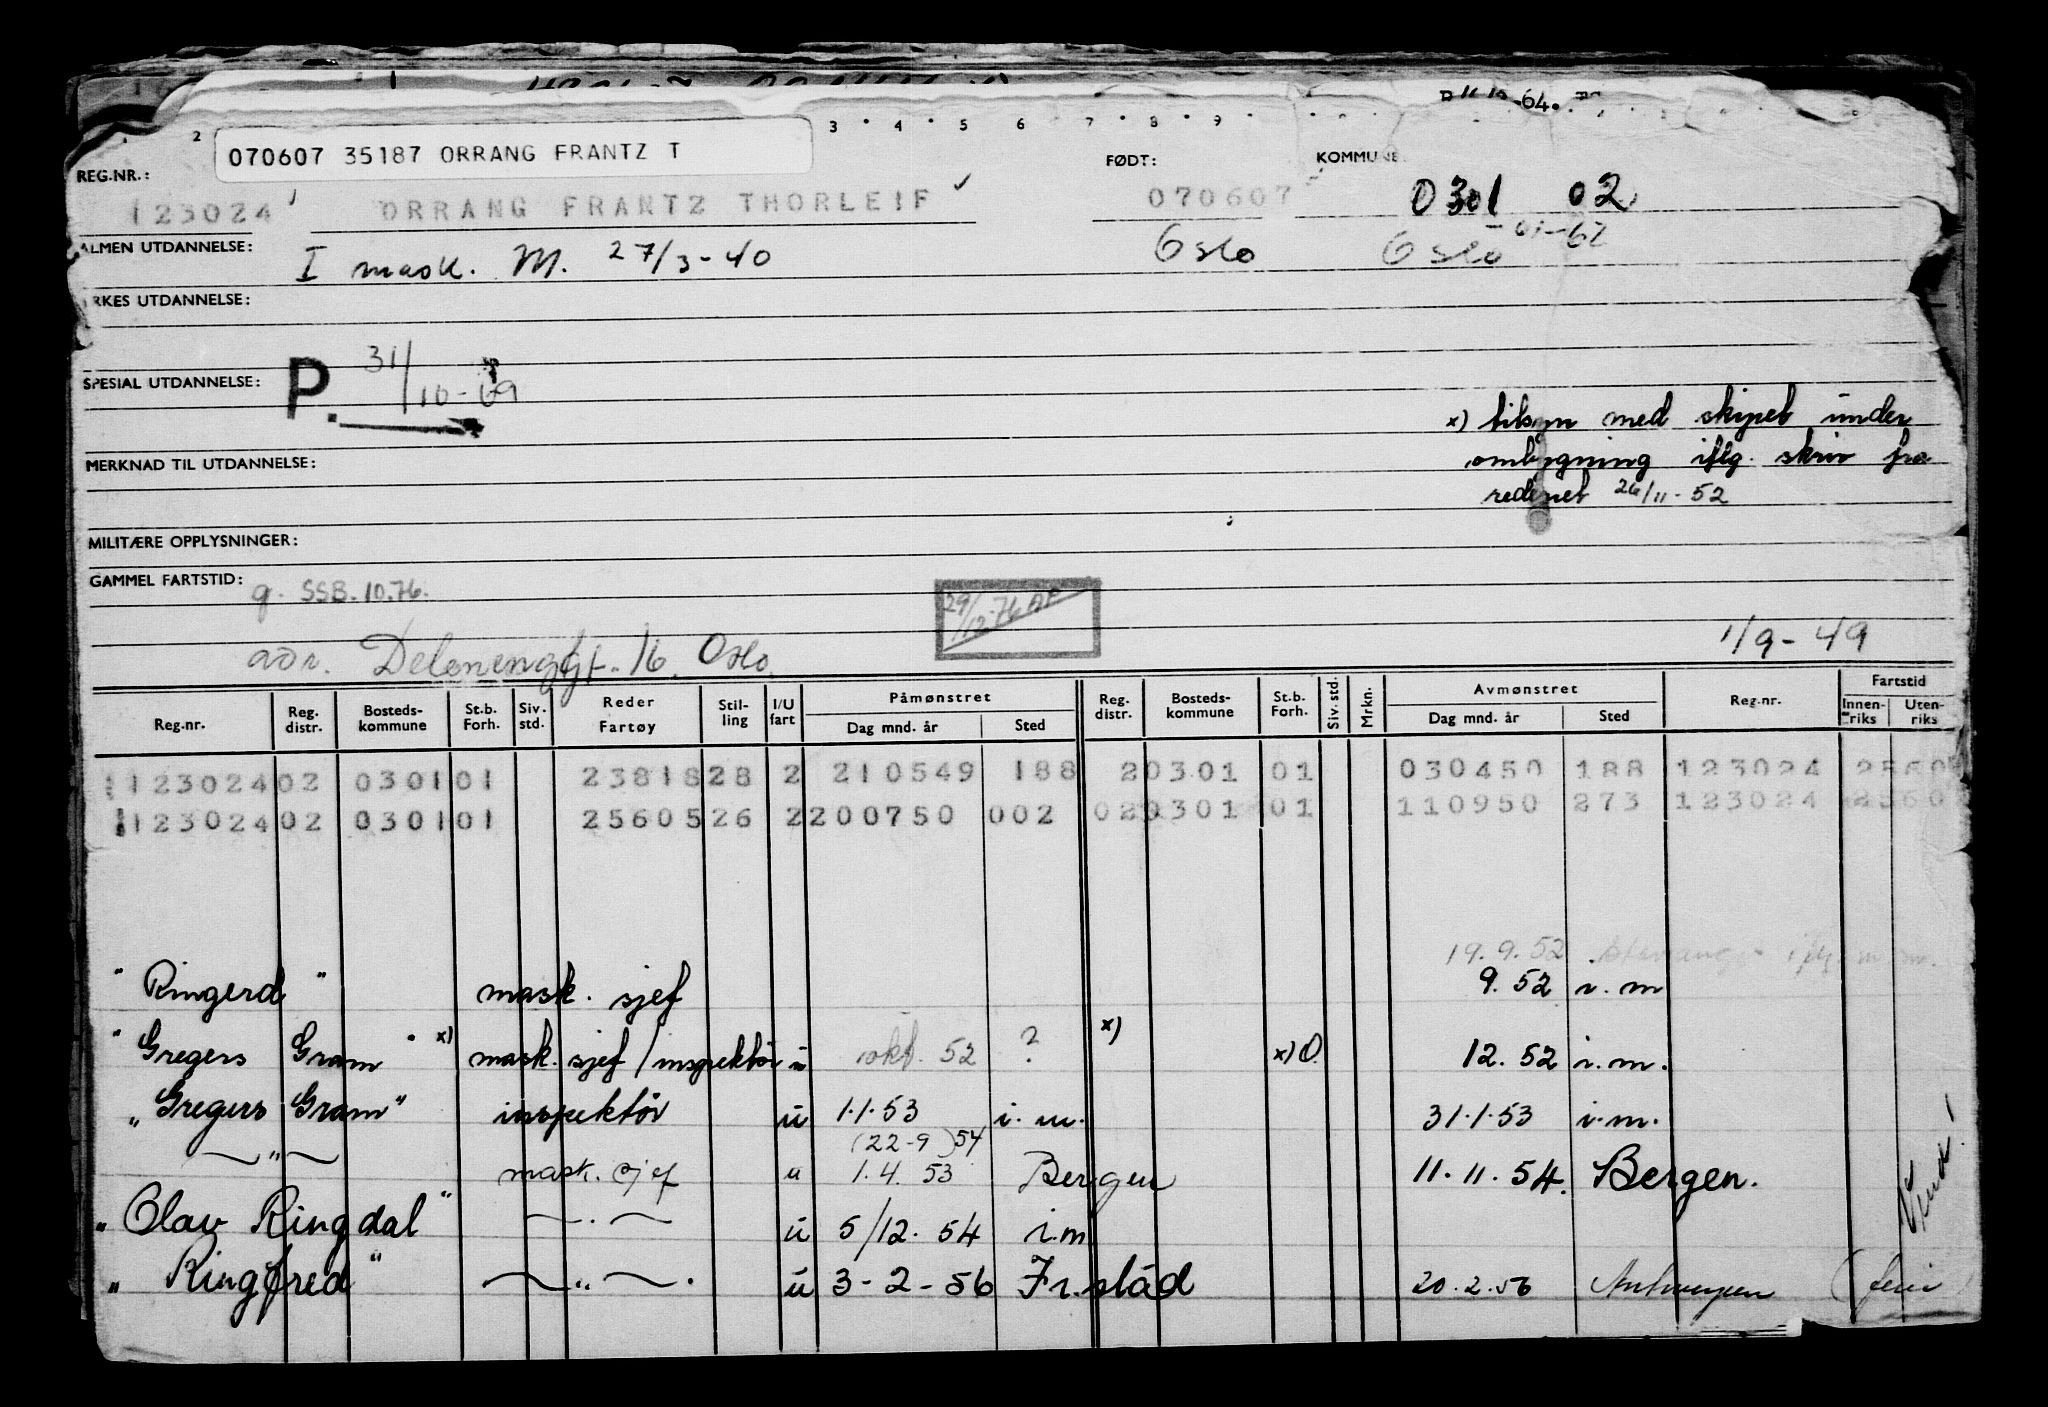 2 3 • 4 • 5 6 7 • 8 • 9 •
070607 35187 ORRANG FRANTZ T
REG.NR.: FØDT: KOMMUNE:
123024 ORRANG FRANTZ THORLEIF ✓ 070607 0301 02
ALMEN UTDANNELSE: I mask. M. 27/3-40 Oslo Oslo
RKES UTDANNELSE:
SPESIAL UTDANNELSE: P. 31/10-69
x) tilsyn med skipet under
MERKNAD TIL UTDANNELSE: ombygning iflg. skriv fra
rederiet 26/11-52
MILITÆRE OPPLYSNINGER:
GAMMEL FARTSTID: g. SSB. 10.76.
29/12-76
adr. Delenenggt. 16. Oslo. 1/9-49
Reg.nr. Reg. distr. Bosteds-kommune St.b. Forh. Siv. std. Reder Fartøy Stil-ling I/U fart Påmønstret Dag mnd. år Sted Reg. distr. Bosteds-kommune St.b. Forh. Siv. std. Mrkn. Avmønstret Dag mnd. år Sted Reg.nr. Fartstid Innen-riks Uten-riks
123024 02 0301 01 23818 28 2 210549 188 2 0301 01 030450 188 123024 2560
123024 02 0301 01 25605 26 2 200750 002 02 0301 01 110950 273 123024 2560
19.9.52
"Ringerd" mask. sjef 9.52 i.m
"Gregers Gram" x) mask. sjef/inspektör u okt. 52 ? x) x) O. 12.52 i.m.
"Gregers Gram" inspektör u 1.1.53 i.m. 31.1.53 i.m.
(22-9)54
—"— mask. sjef u 1.4.53 Bergen 11.11.54. Bergen.
"Olav Ringdal" —"— u 5/12.54 i.m
"Ringfred" —"—. u 3-2-56 Fr.stad 20.2.56 Antwerpen (ferie)